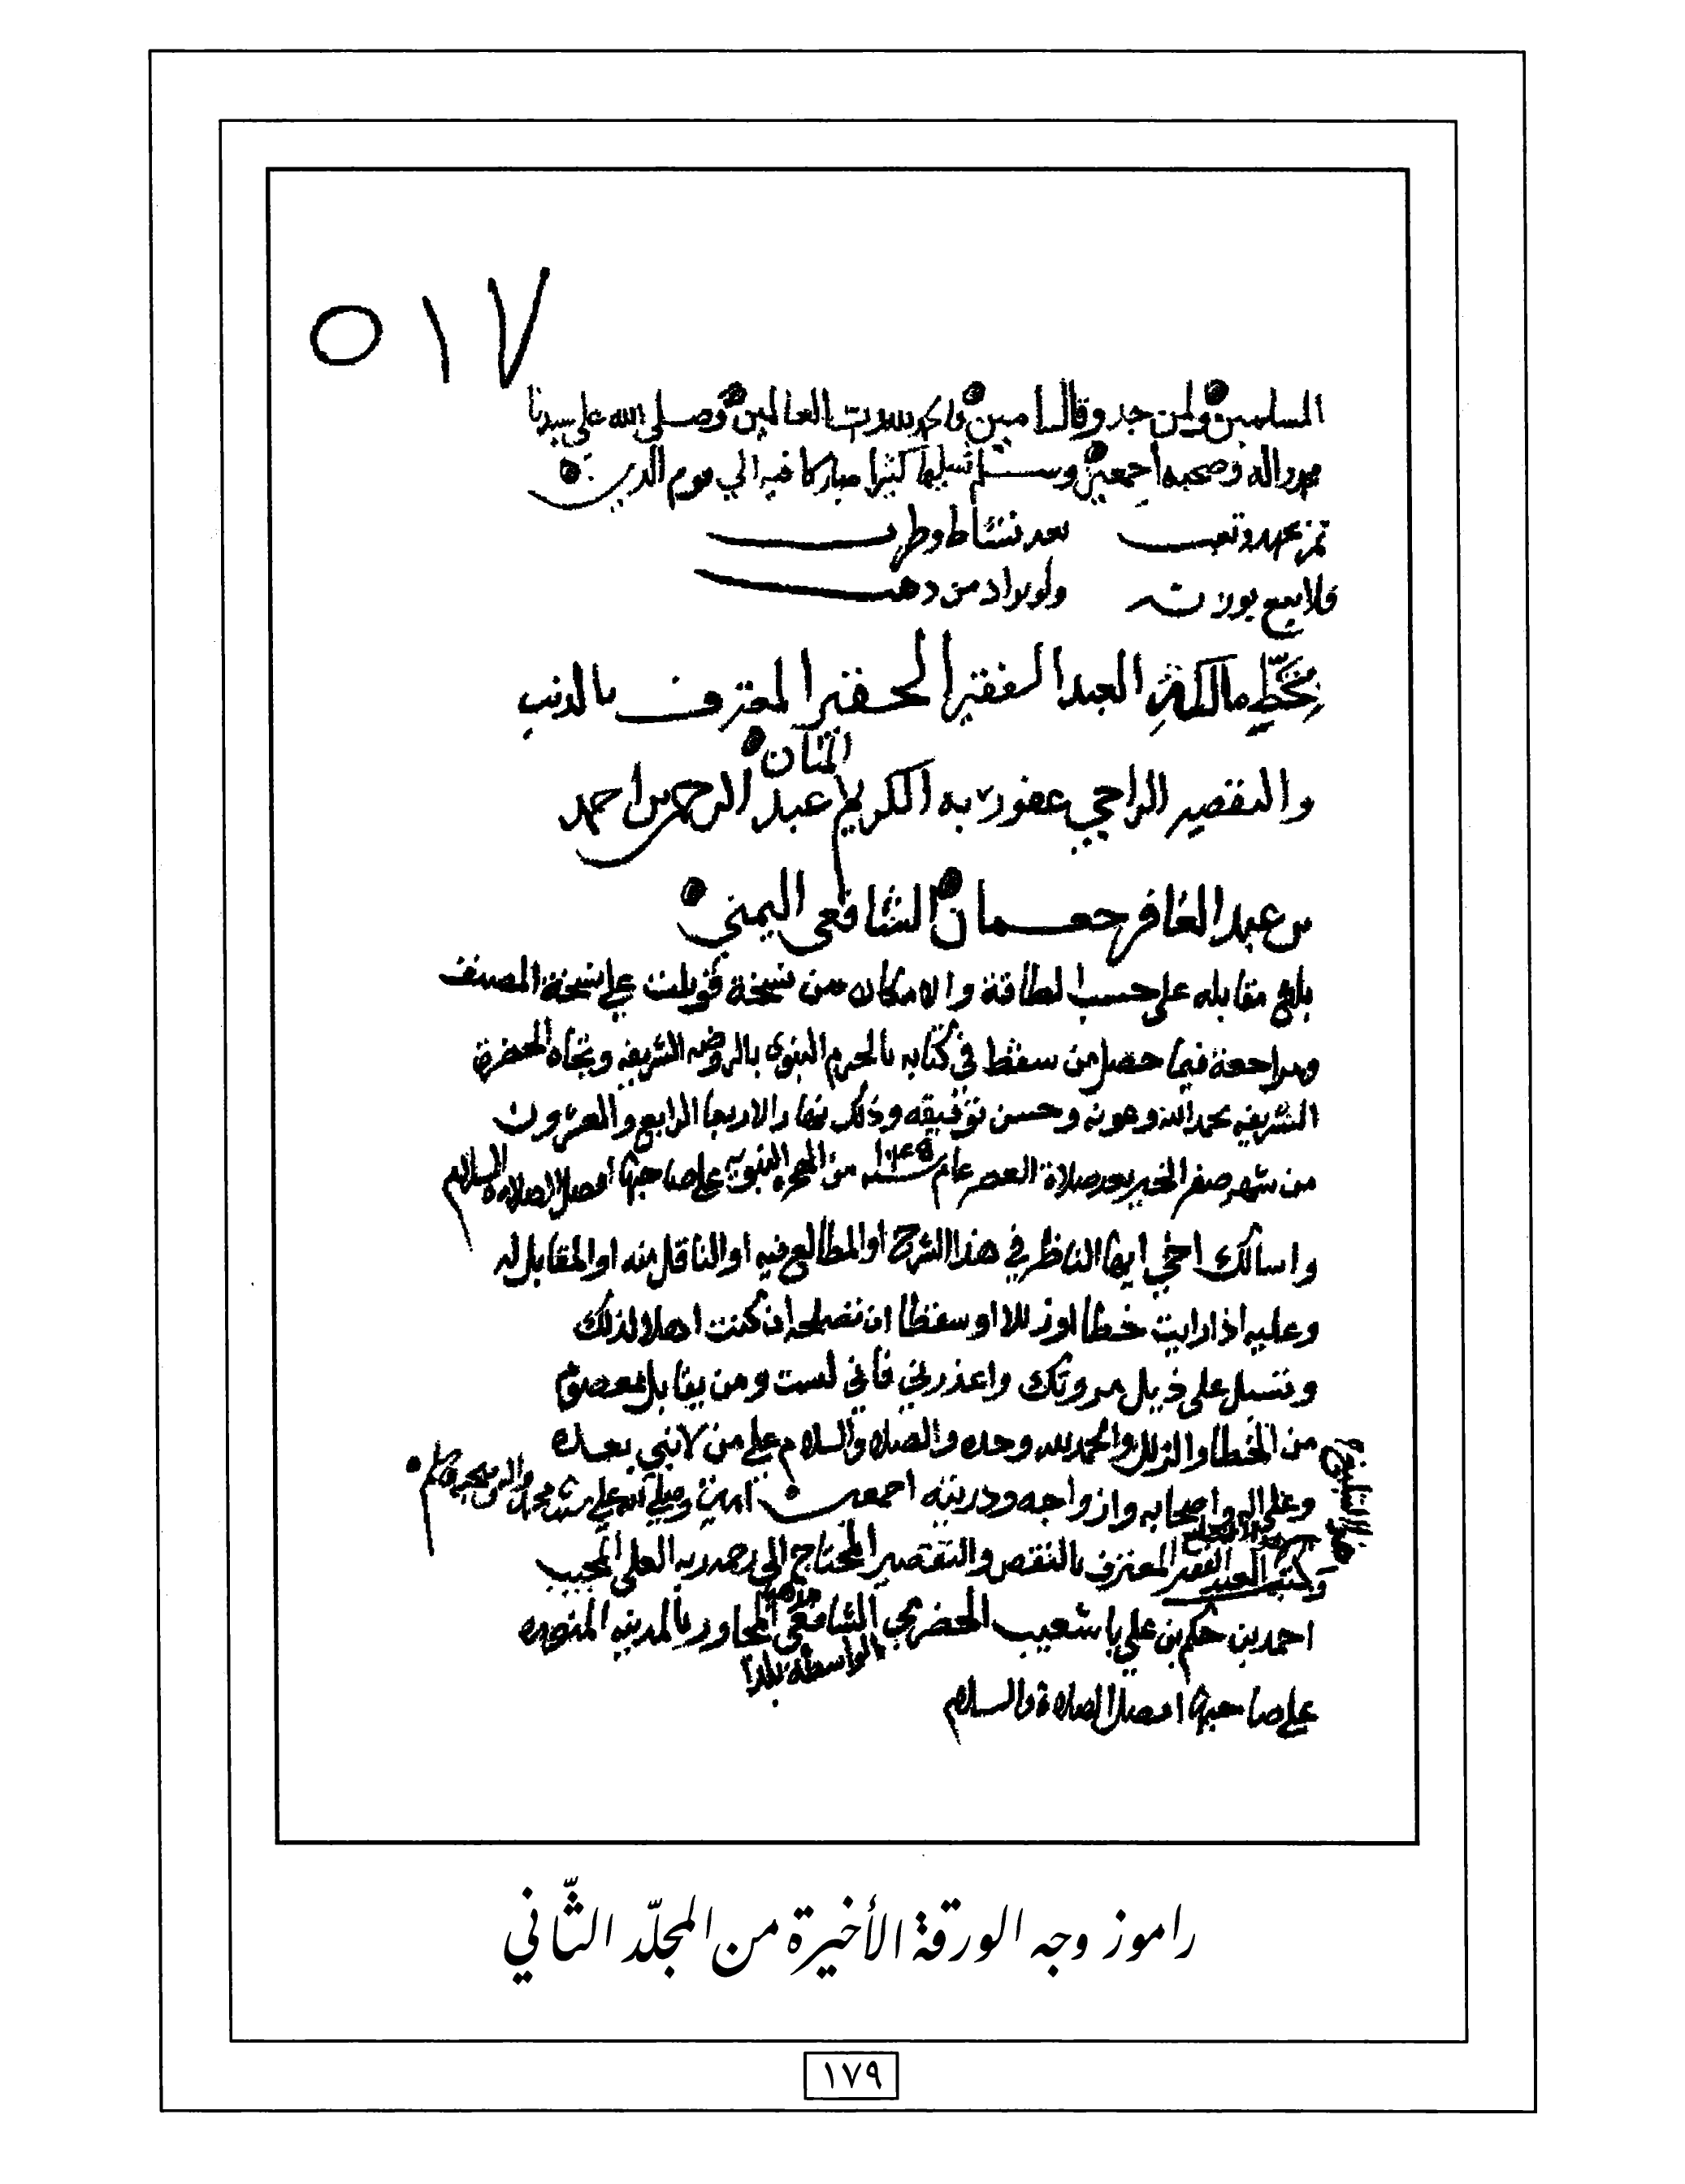 ٥١٧
المسلمين ولمن جد وقال امين والحمد لله رب العالمين وصلى الله على سيدنا
محمد واله وصحبه أجمعين وسلم تسليما كثيرا مباركا فيه الي يوم الدين
تم بجهد وتعب بعد نشاط وطرب
فلا يبع بولا ولو يزاد من دهب
بخط مالكه العبد الفقير الحقير المعترف بالذنب
والتقصير الراجي عفو ربه الكريم المنان عبد الرحمن بن احمد
بن عبد الغافر جعمان الشافعي اليمني
بلغ مقابله على حسب الطاقة والامكان من نسخة قوبلت علي نسخة المصنف
ومراجعة فيما حصل من سقط في كتابه بالحرم النبوي بالروضه الشريفه وتجاه الحضرة
الشريفه بحمد الله وعونه وحسن توفيقه وذلك نهار الاربعا الرابع والعشرون
من شهر صفر الخير بعد صلاة العصر عام سنه من الهجره النبويه على صاحبها افضل الصلاه والسلام
واسالك اخي ايها الناظر في هذا الشرح او المطالع فيه او الناقل منه او المقابل له
وعليه اذا رايت خطا او زللا او سقطا ان تصلحه ان كنت اهلا لذلك
وتسبل على ذيل مروتك واعذرني فاني لست ومن يقابل بمعصوم
من الخطا والزلل والحمد لله وحده والصلاه والسلام علي من لا نبي بعده
وعلى اله واصحابه وازواجه وذريته اجمعين امين وصلي الله علي سيدنا محمد واله وصحبه وسلم
وكتبه العبد الفقير المعترف بالنقص والتقصير المحتاج الى رحمة ربه العلي المجيب
احمد بن حكم بن علي باشعيب الحضرمي الشافعي مذهبا المجاور بالمدينه المنوره
الواسطه بلدا
علي صاحبها افضل الصلاة والسلام
راموز وجه الورقة الأخيرة من المجلّد الثّاني
١٧٩